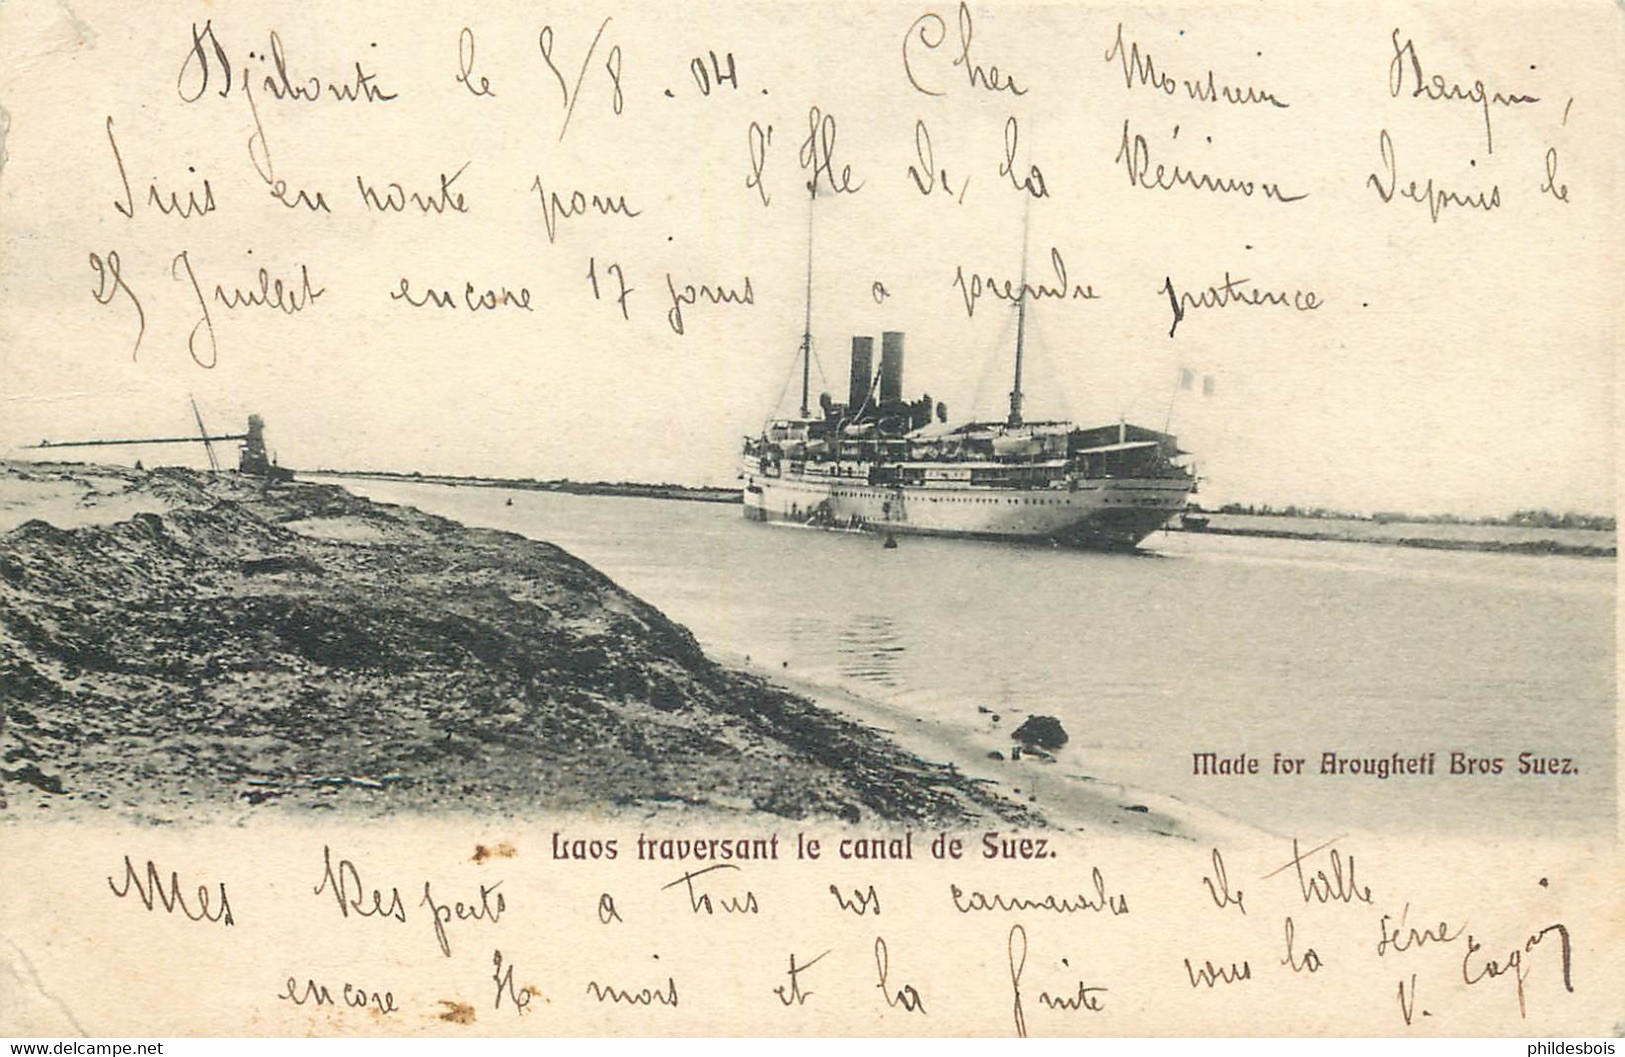 Djibouti le 5/8.04. Cher Monsieur
Suis en route pour l'Ile de la Réunion depuis le
25 Juillet encore 17 jours a prendre patience.
Made for Arougheti Bros Suez.
Laos traversant le canal de Suez.
Mes Respects a tous vos camarades de table
encore 36 mois et la fuite vous la
V.
philдesbois